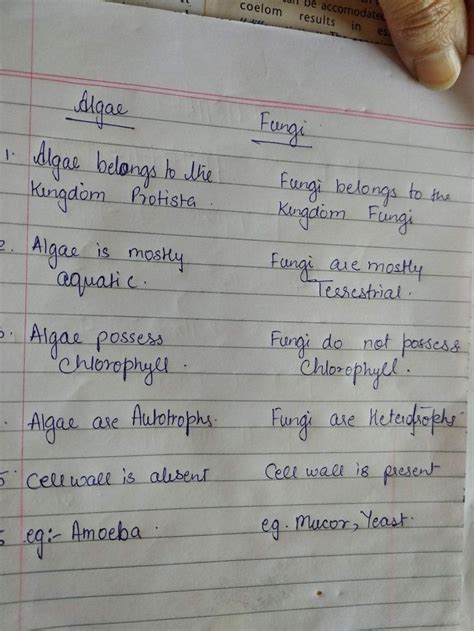 can be accomodated
coelom results in es
Algae Fungi
1. Algae belongs to the Fungi belongs to the
Kingdom Protista. Kingdom Fungi
2. Algae is mostly Fungi are mostly
aquatic. Terrestrial.
Algae possess Fungi do not possess
Chlorophyll. Chlorophyll.
Algae are Autotrophs. Fungi are Heterotrophs
5. Cell wall is absent Cell wall is present
eg:- Amoeba. eg. Mucor, Yeast.